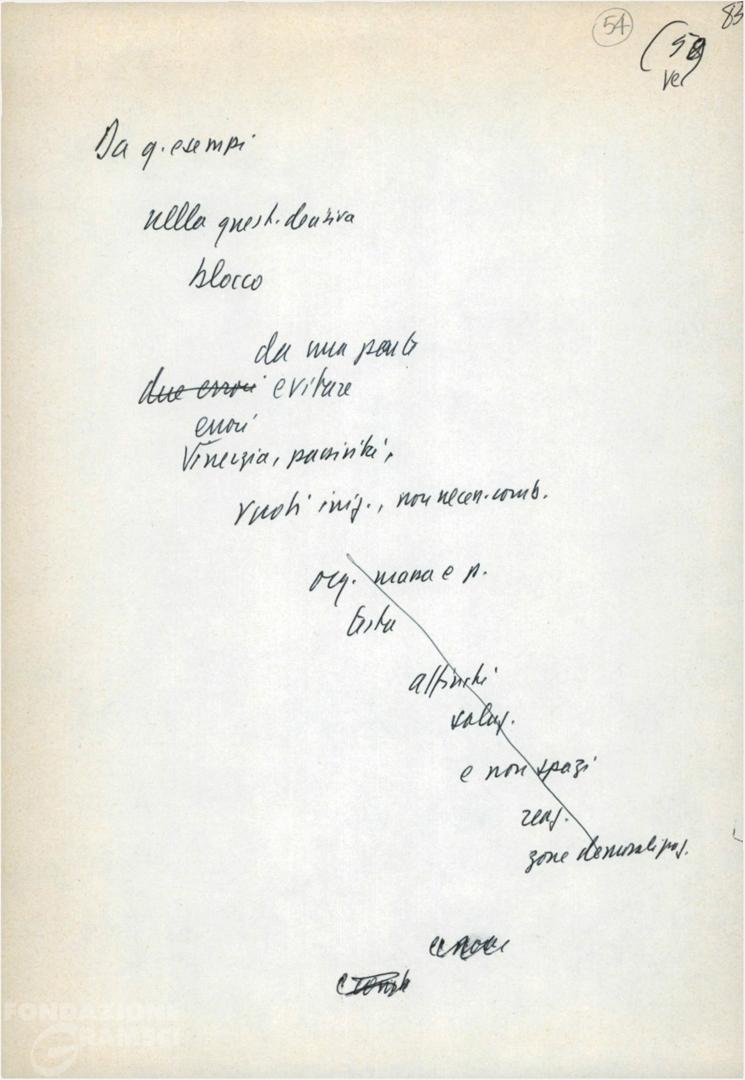 83
54
(58)
ver
Da q. esempi
nella quest. decisiva
blocco
da una parte
due errori evitare
errori
Venezia, passività,
vuoti iniz., non necess. comb.
org. massa e p.
testa
affinché
e non spazi
reaz.
zone demoralizzaz.
FONDAZIONE
GRAMSCI